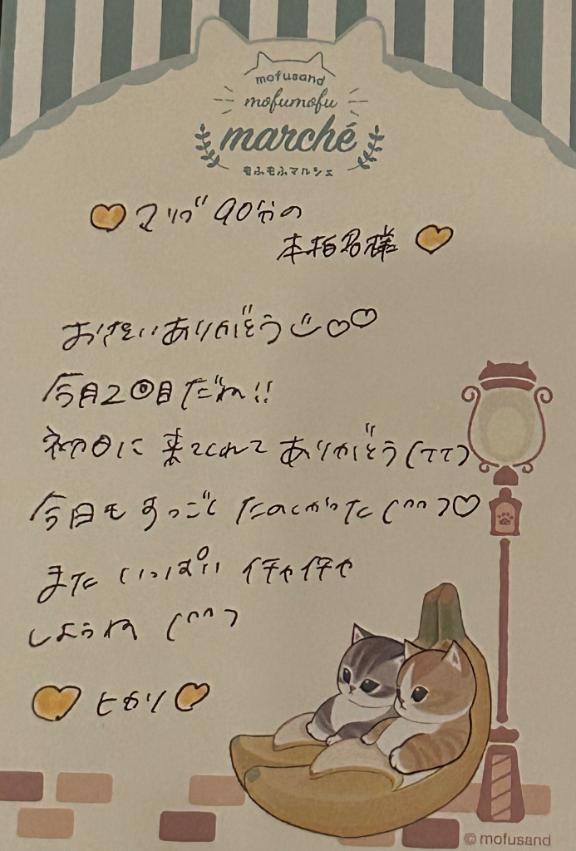 mofusand
mofumofu
marché
もふもふマルシェ
マリブ 90分の
本指名様
おさそいありがとう
今月2回目だね!!
初日に 来てくれて ありがとう (TTT)
今日も すっごく たのしかった (^^)♡
また いっぱい イチャイチャ
しようね (^^)
ヒカリ
© mofusand